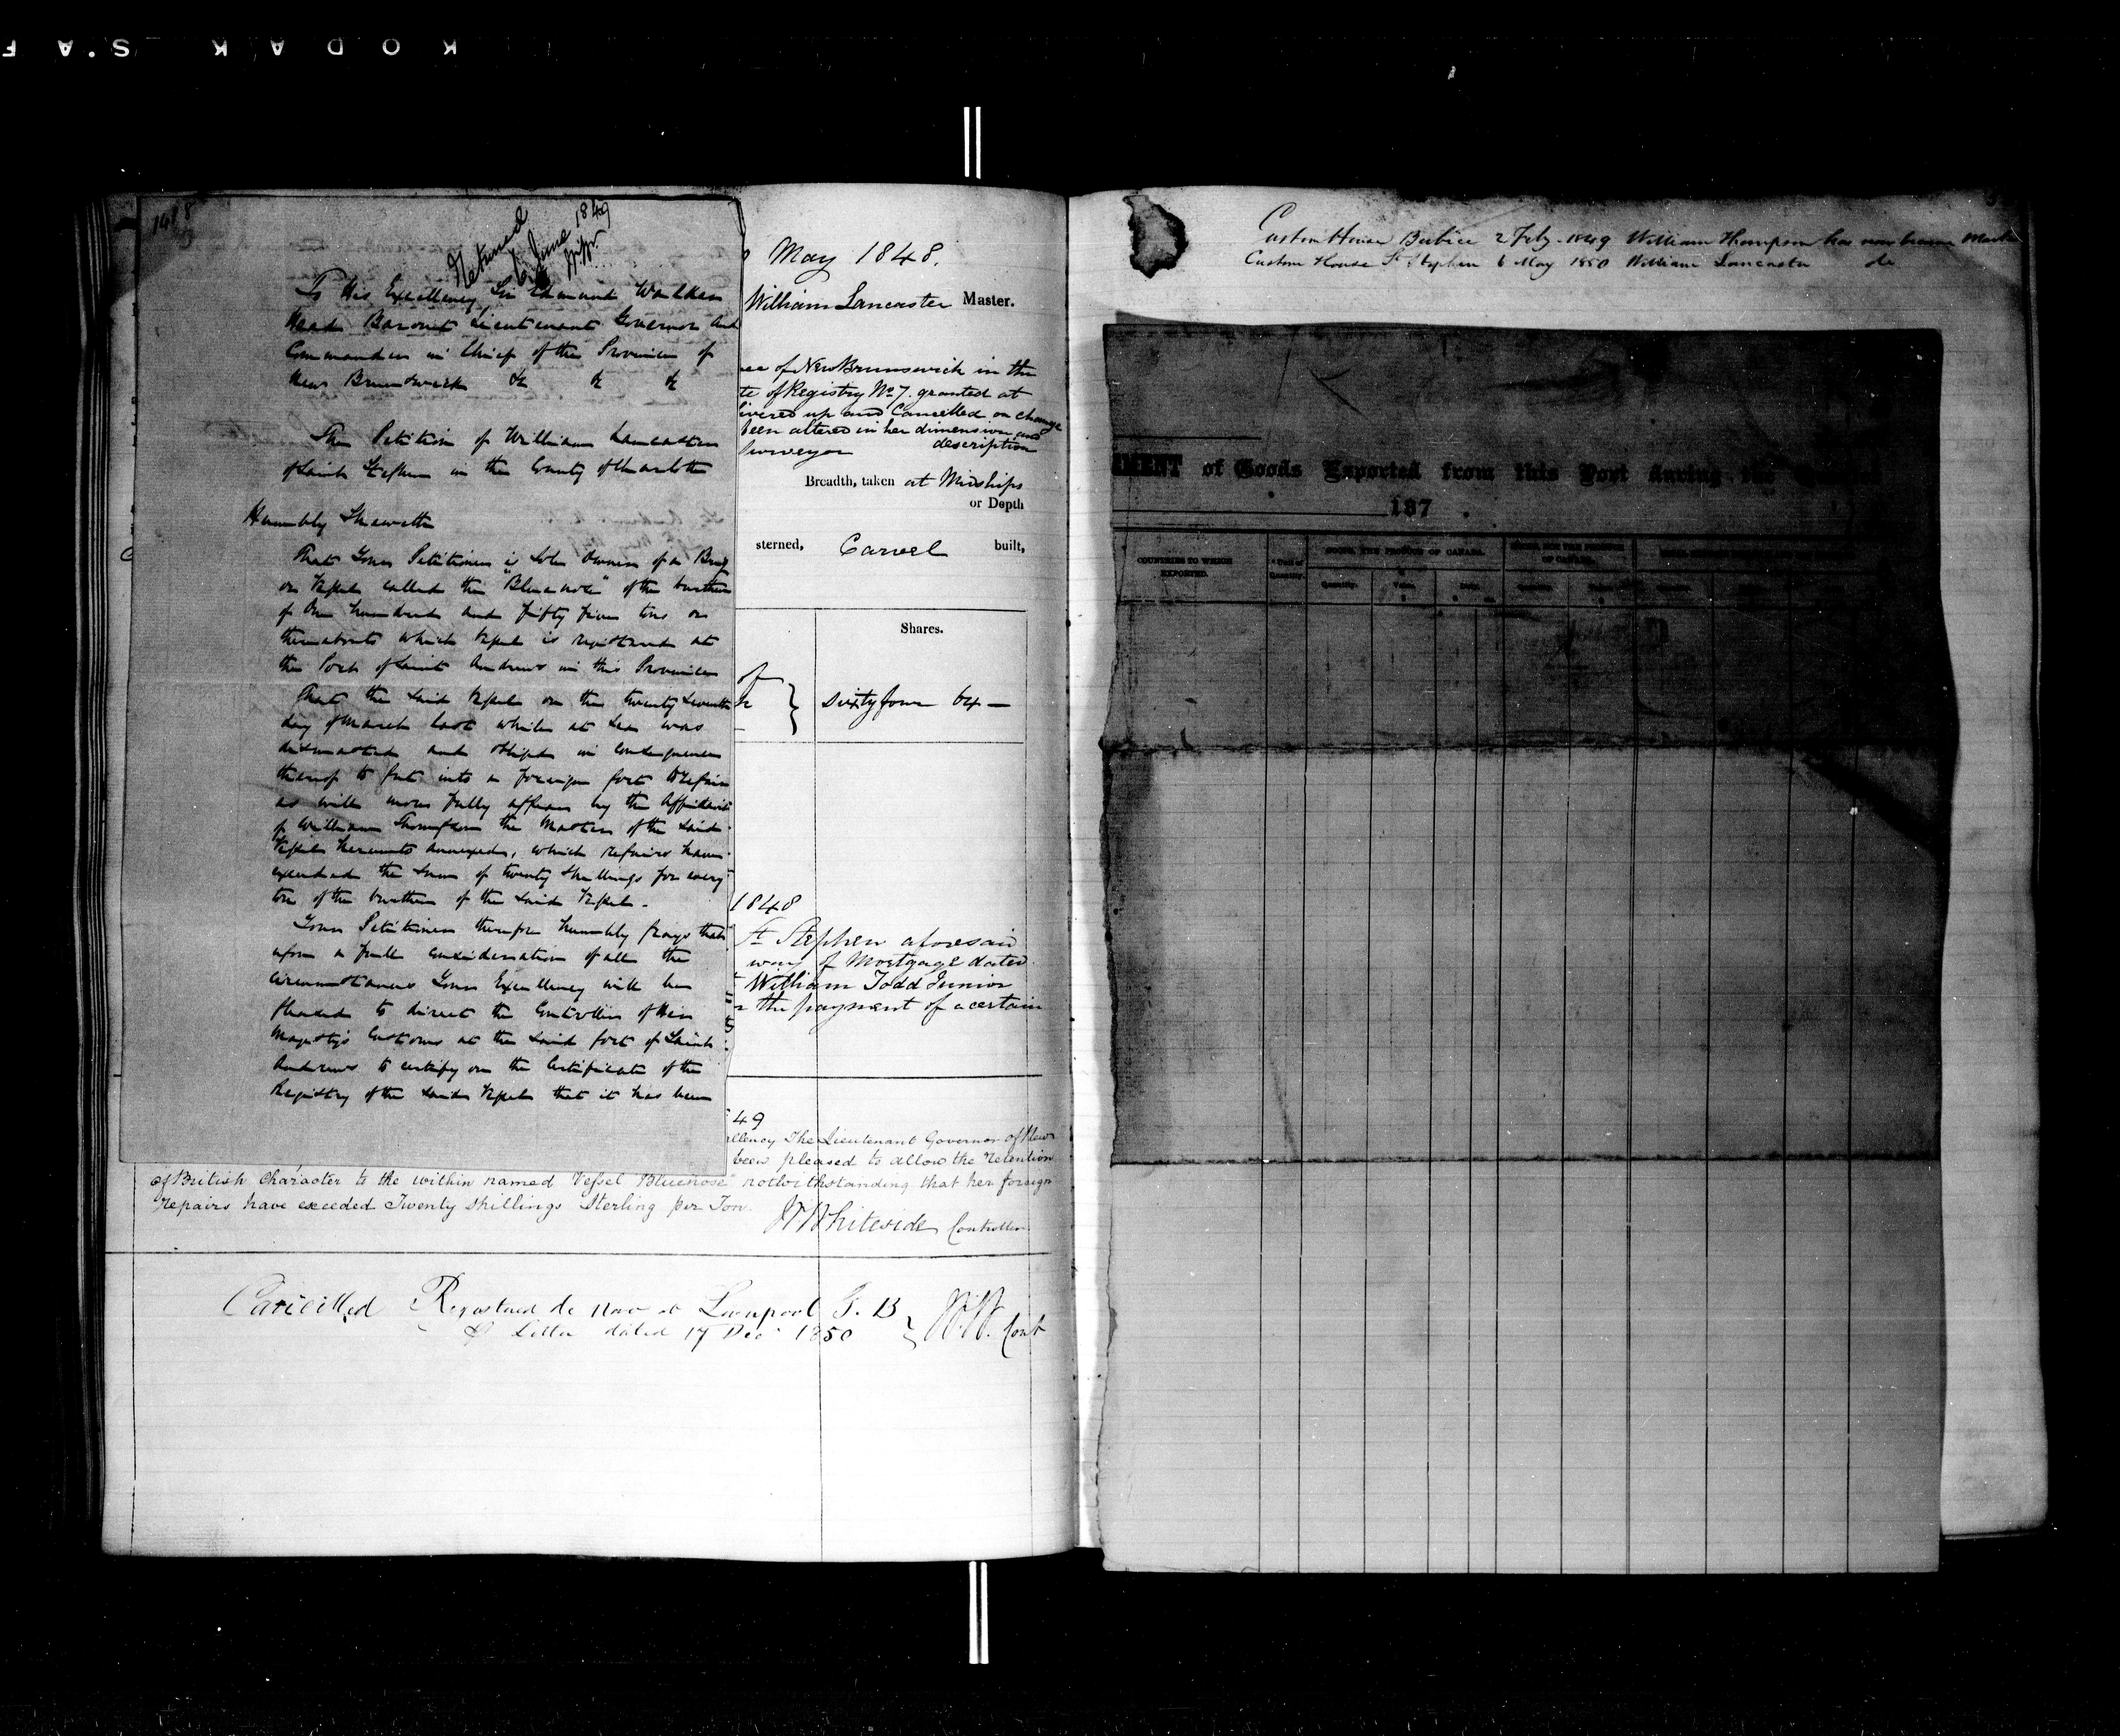 KODAK S.A F
Returned
6 June 1849
To His Excellency Sir Edmund Walker
Head Baronet Lieutenant Governor and
Commander in Chief of the Province of
New Brunswick &c &c &c
The Petition of William Lancaster
of Saint Stephen in the County of Charlotte
Humbly Sheweth
That Your Petitioner is Sole Owner of a Brig
or Vessel called the "Bluenose" of the burthen
of One hundred and fifty four tons or
thereabouts which Vessel is registered at
the Port of Saint Andrews in this Province
That the said Vessel on the twenty Seventh
day of March last while at Sea was
dismasted and obliged in consequence
thereof to put into a foreign port to repair
as will more fully appear by the Affidavit
of William Thompson the Master of the Said
Vessel hereunto annexed, which repairs have
exceeded the Sum of twenty Shillings for every
ton of the burthen of the Said Vessel.
Your Petitioner therefore humbly prays that
upon a full consideration of all the
circumstances Your Excellency will be
pleased to direct the Controller of Her
Majesty's Customs at the Said port of Saint
Andrews to certify on the Certificate of the
Registry of the Said Vessel that it has been
May 1848.
William Lancaster Master.
of New Brunswick in the
te of Registry No 7. granted at
ivered up and Cancelled on change
been altered in her dimension and
description
Surveyor
Breadth, taken at Midships
or Depth
sterned, Carvel built,
Shares.
of
sixty four 64 —
1848
St Stephen aforesaid
way of Mortgage dated
William Todd Junior
the payment of a certain
49
ellency The Lieutenant Governor of New
been pleased to allow the retention
of British Character to the within named Vessel Bluenose notwithstanding that her foreign
repairs have exceeded Twenty shillings Sterling per Ton.
Whiteside Controller
Cancelled Registered de novo at Liverpool G. B
Letter dated 17 Dec 1850
Cont
Custom House Berbice 2 Feby. 1849 William Thompson has now become Master
Custom House St Stephen 6 May 1850 William Lancaster do
EMENT of Goods Exported from this Port during the Quarter
187
COUNTRIES TO WHICH
EXPORTED.
Unit of
Quantity.
GOODS, THE PRODUCE OF CANADA.
OF CANADA.
Quantity.
Value.
$